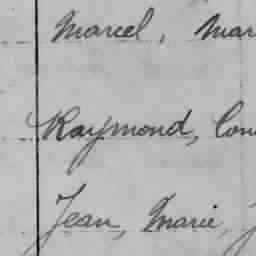 Marcel, Mar
Raymond, Con
Jean, Marie,